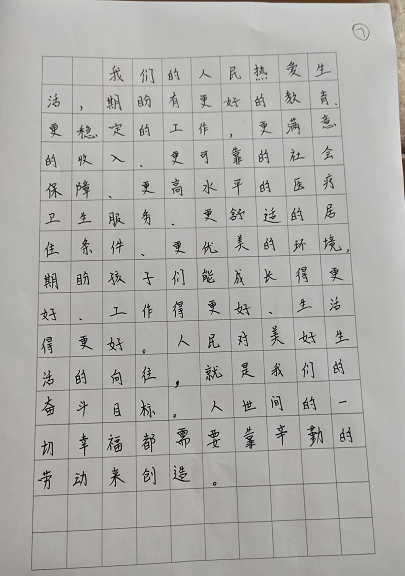 7
我们的人民热爱生
活,期盼有更好的教育、
更稳定的工作,更满意
的收入、更可靠的社会
保障、更高水平的医疗
卫生服务、更舒适的居
住条件、更优美的环境,
期盼孩子们能成长得更
好、工作得更好、生活
得更好。人民对美好生
活的向往,就是我们的
奋斗目标。人世间的一
切幸福都需要靠辛勤的
劳动来创造。